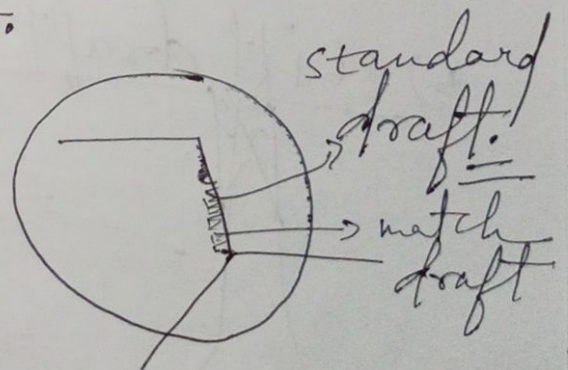 standard
draft.
match
draft